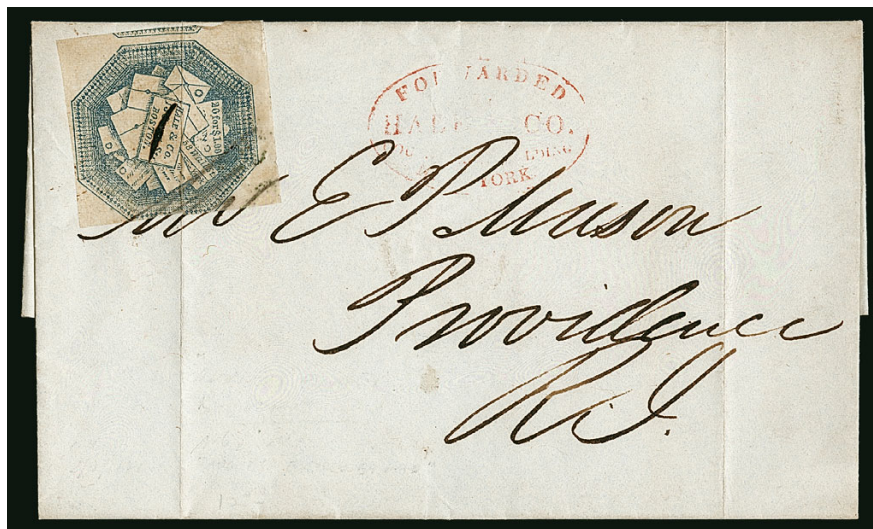 20 for $1.00
HALE & CO.
BOSTON.
FORWARDED
HALE & CO.
YORK
Mr E P Mason
Providence
R. I.